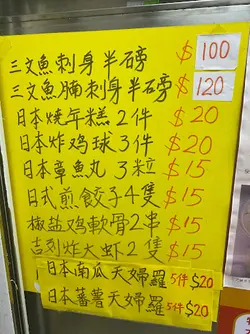 三文魚刺身半磅 $100
三文魚腩刺身半磅 $120
日本燒年糕2件 $20
日本炸鸡球3件 $20
日本章魚丸 3粒 $15
日式煎餃子4隻 $15
椒盐鸡軟骨2串 $15
吉列炸大虾2隻 $15
日本南瓜天婦羅 5件 $20
日本蕃薯天婦羅 5件 $20